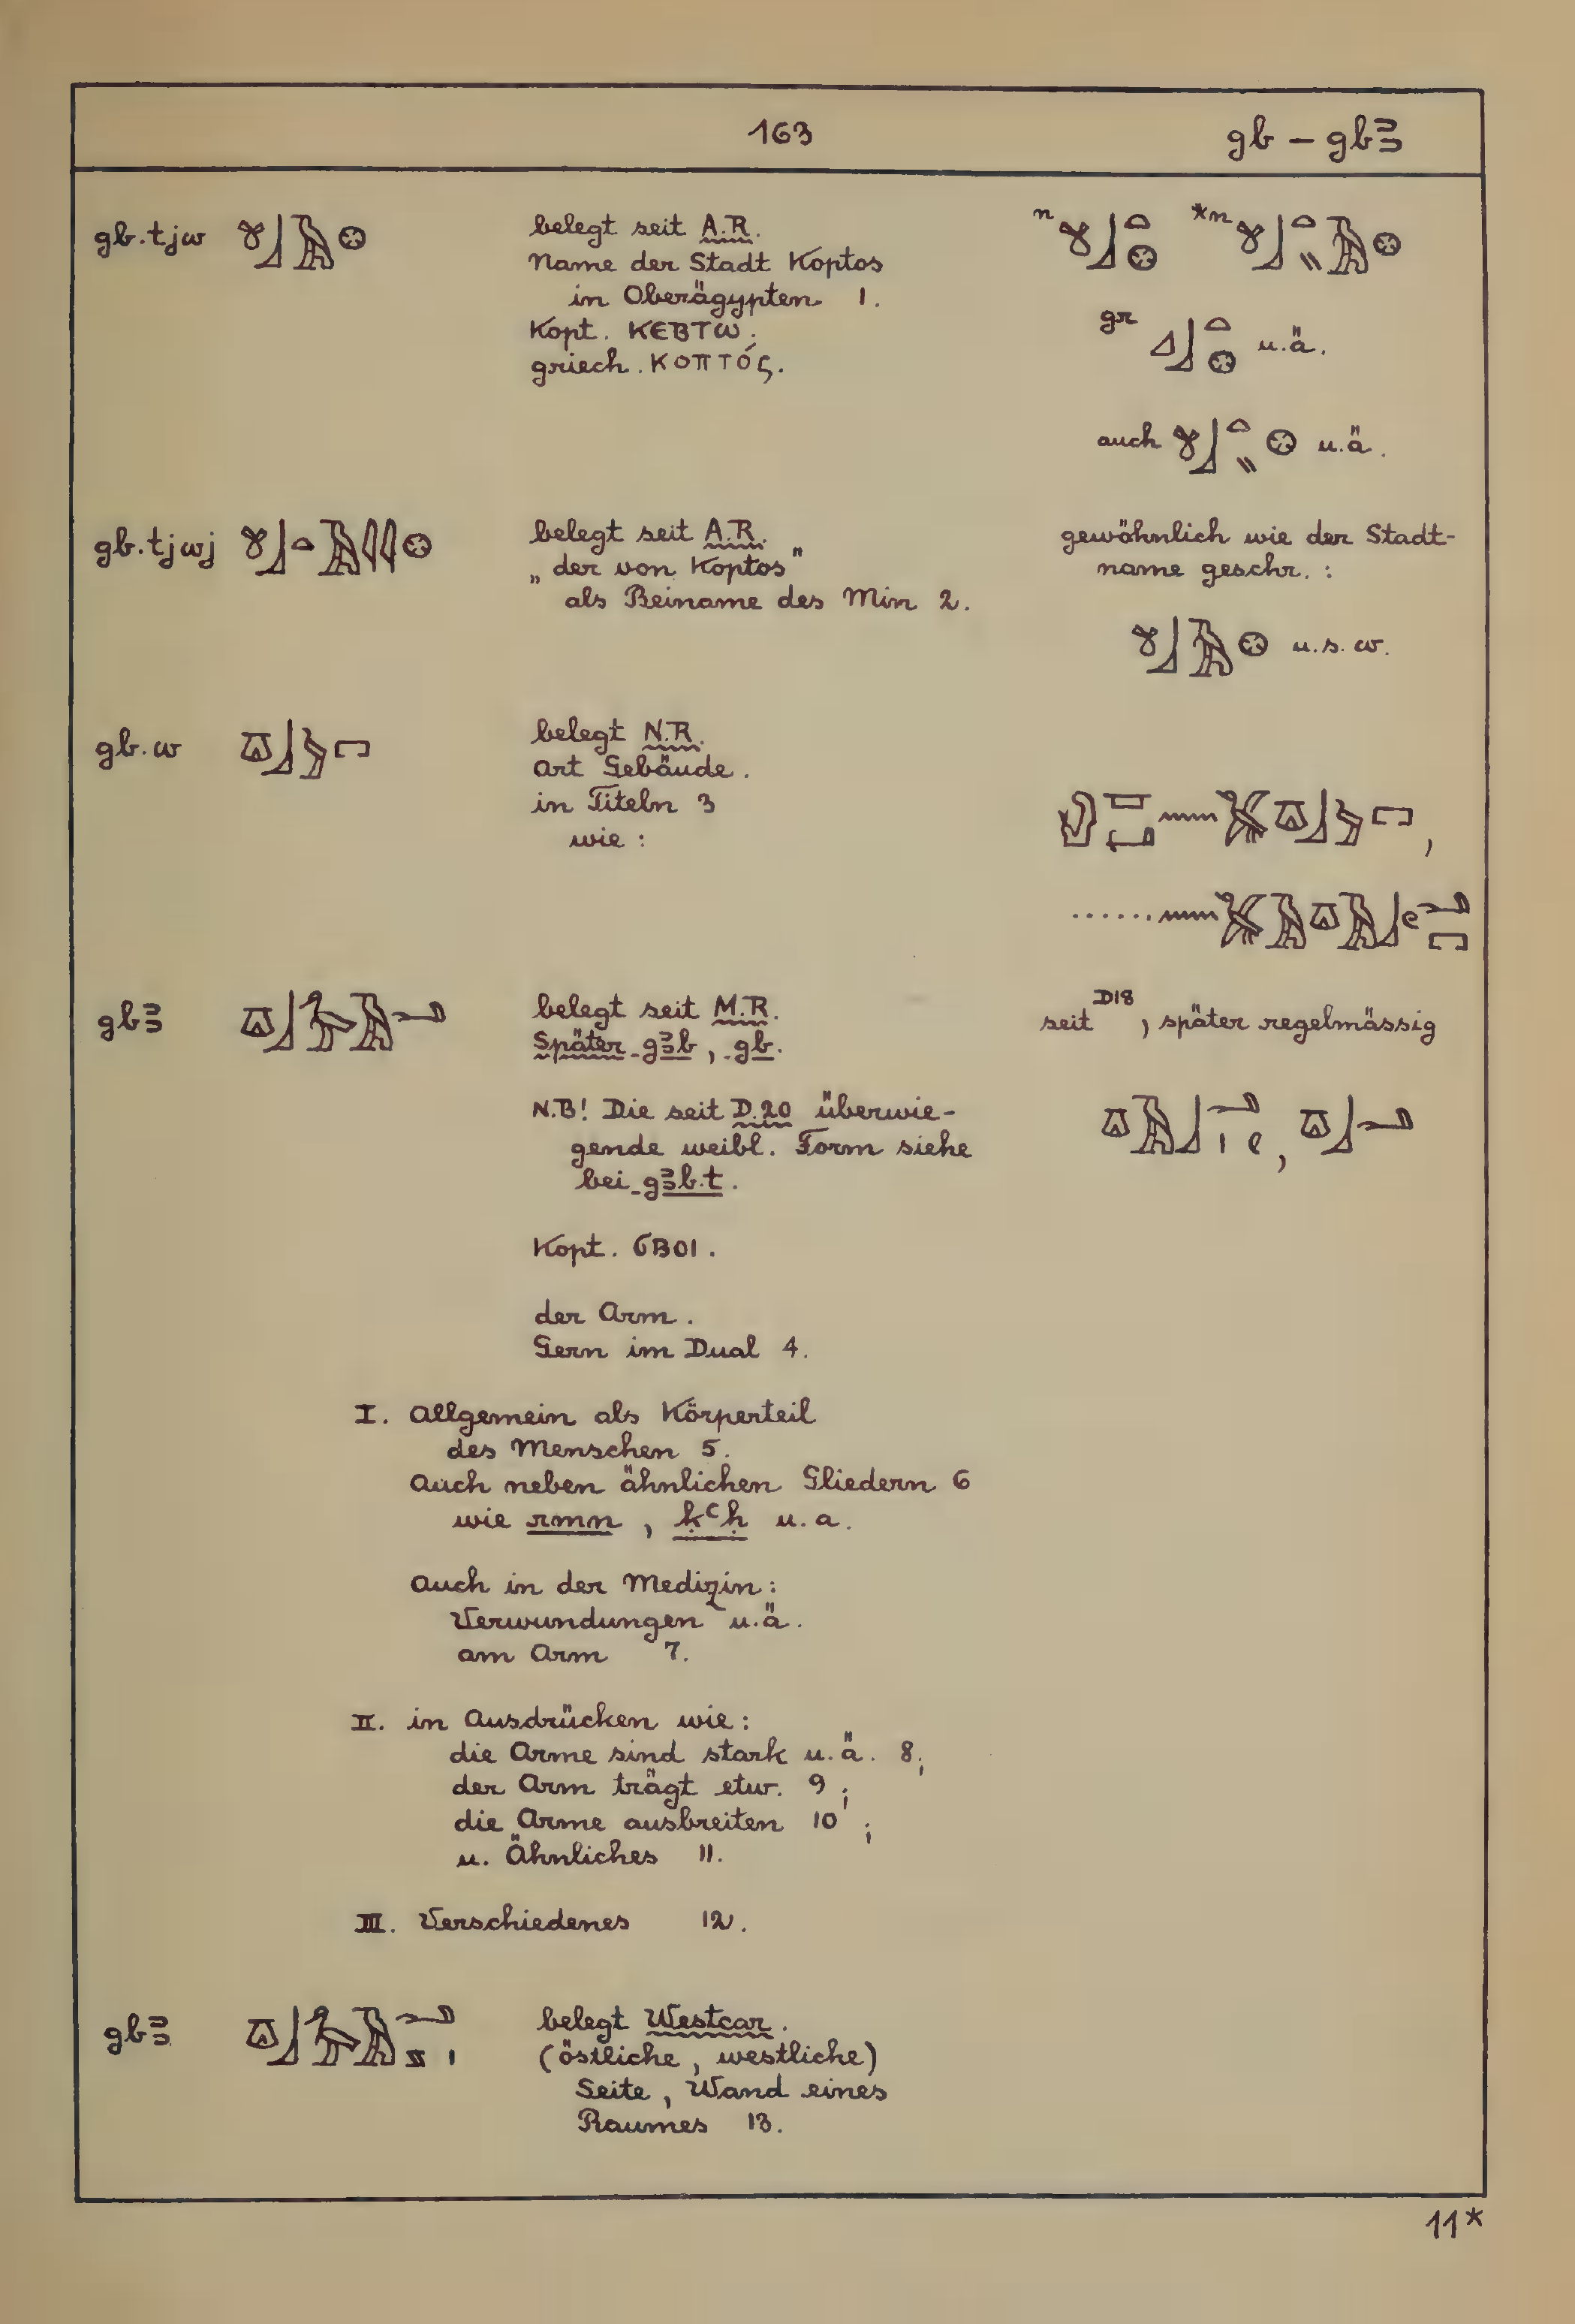 163
gb – gbꜣ
gb.tjw
belegt seit A.R.
Name der Stadt Koptos
in Oberägypten 1.
Kopt. ⲔⲈⲂⲦⲰ;
griech. κοπτός.
n *n
gr u.ä.
auch u.ä.
gb.tjwj
belegt seit A.R.
„der von Koptos"
als Beiname des Min 2.
gewöhnlich wie der Stadt-
name geschr. :
u.s.w.
gb.w
belegt N.R.
Art Gebäude.
in Titeln 3
wie :
,
......
gbꜣ
belegt seit M.R.
Später gꜣb, gb.
seit D18, später regelmässig
N.B! Die seit D.20 überwie-
gende weibl. Form siehe
bei gꜣb.t.
,
Kopt. ϬⲂⲞⲒ.
der Arm.
Gern im Dual 4.
I. Allgemein als Körperteil
des Menschen 5.
Auch neben ähnlichen Gliedern 6
wie rmn, ḳꜥḥ u.a.
Auch in der Medizin:
Verwundungen u.ä.
am Arm 7.
II. in Ausdrücken wie:
die Arme sind stark u.ä. 8;
der Arm trägt etw. 9;
die Arme ausbreiten 10;
u. Ähnliches 11.
III. Verschiedenes 12.
gbꜣ
belegt Westcar.
(östliche, westliche)
Seite, Wand eines
Raumes 13.
11*